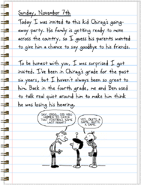 Sunday, November 7th
Today I was invited to this kid Chirag's going-
away party. His family is getting ready to move
across the country, so I guess his parents wanted
to give him a chance to say goodbye to his friends.
To be honest with you, I was surprised I got
invited. I've been in Chirag's grade for the past
six years, but I haven't always been so great to
him. Back in the fourth grade, me and Ben used
to talk real quiet around him to make him think
he was losing his hearing.